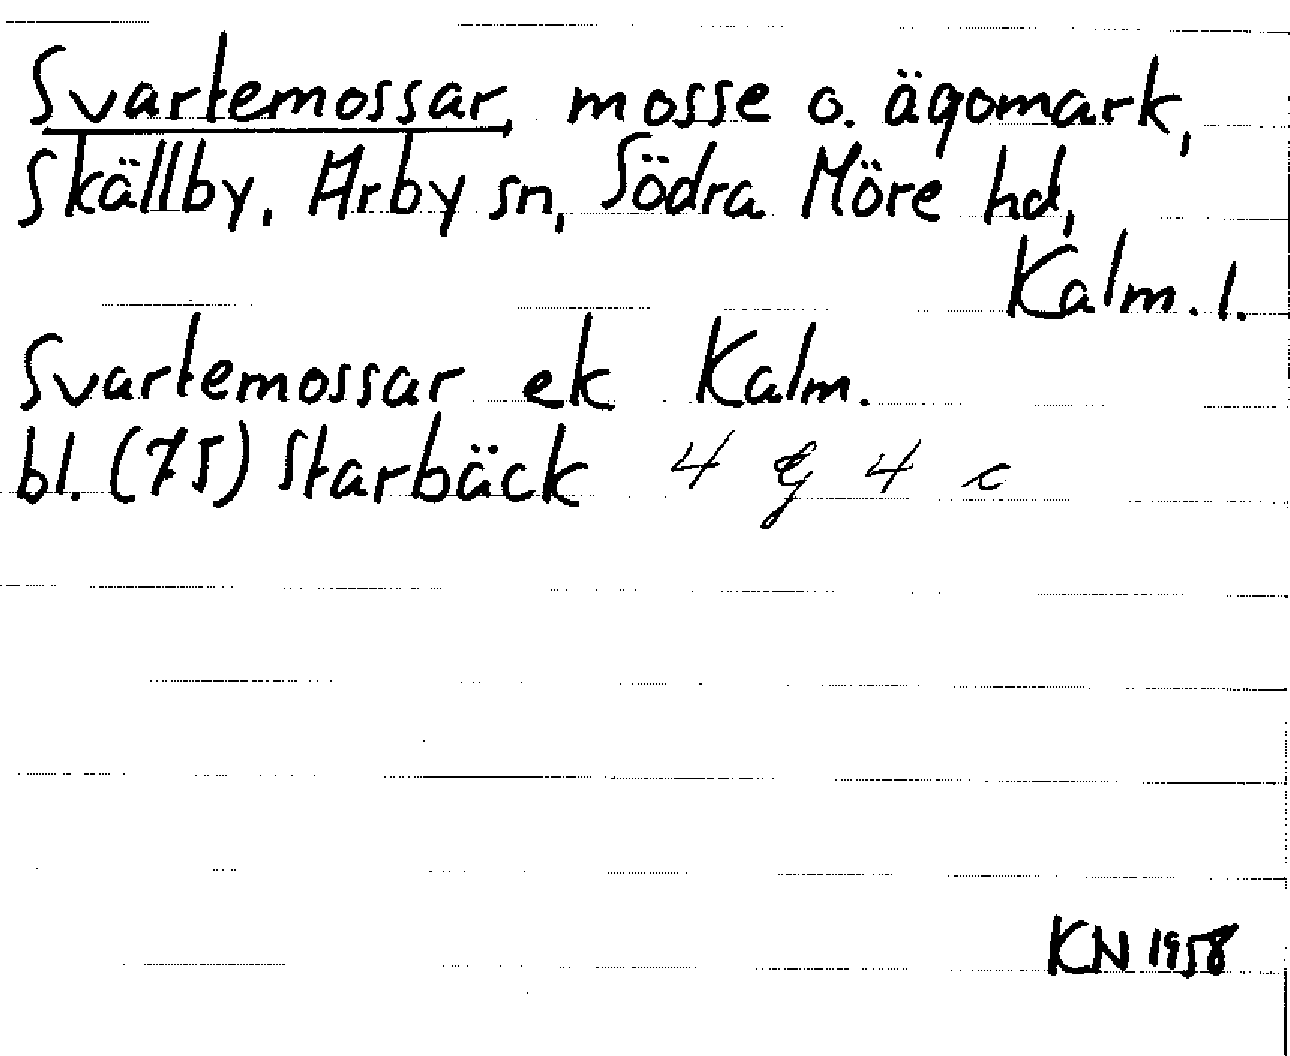 Svartemossar, mosse o. ägomark,
Skällby, Arby sn, Södra Möre hd,
Kalm. l.
Svartemossar ek Kalm.
bl. (75) Starbäck 4 g 4 c
KN 1958